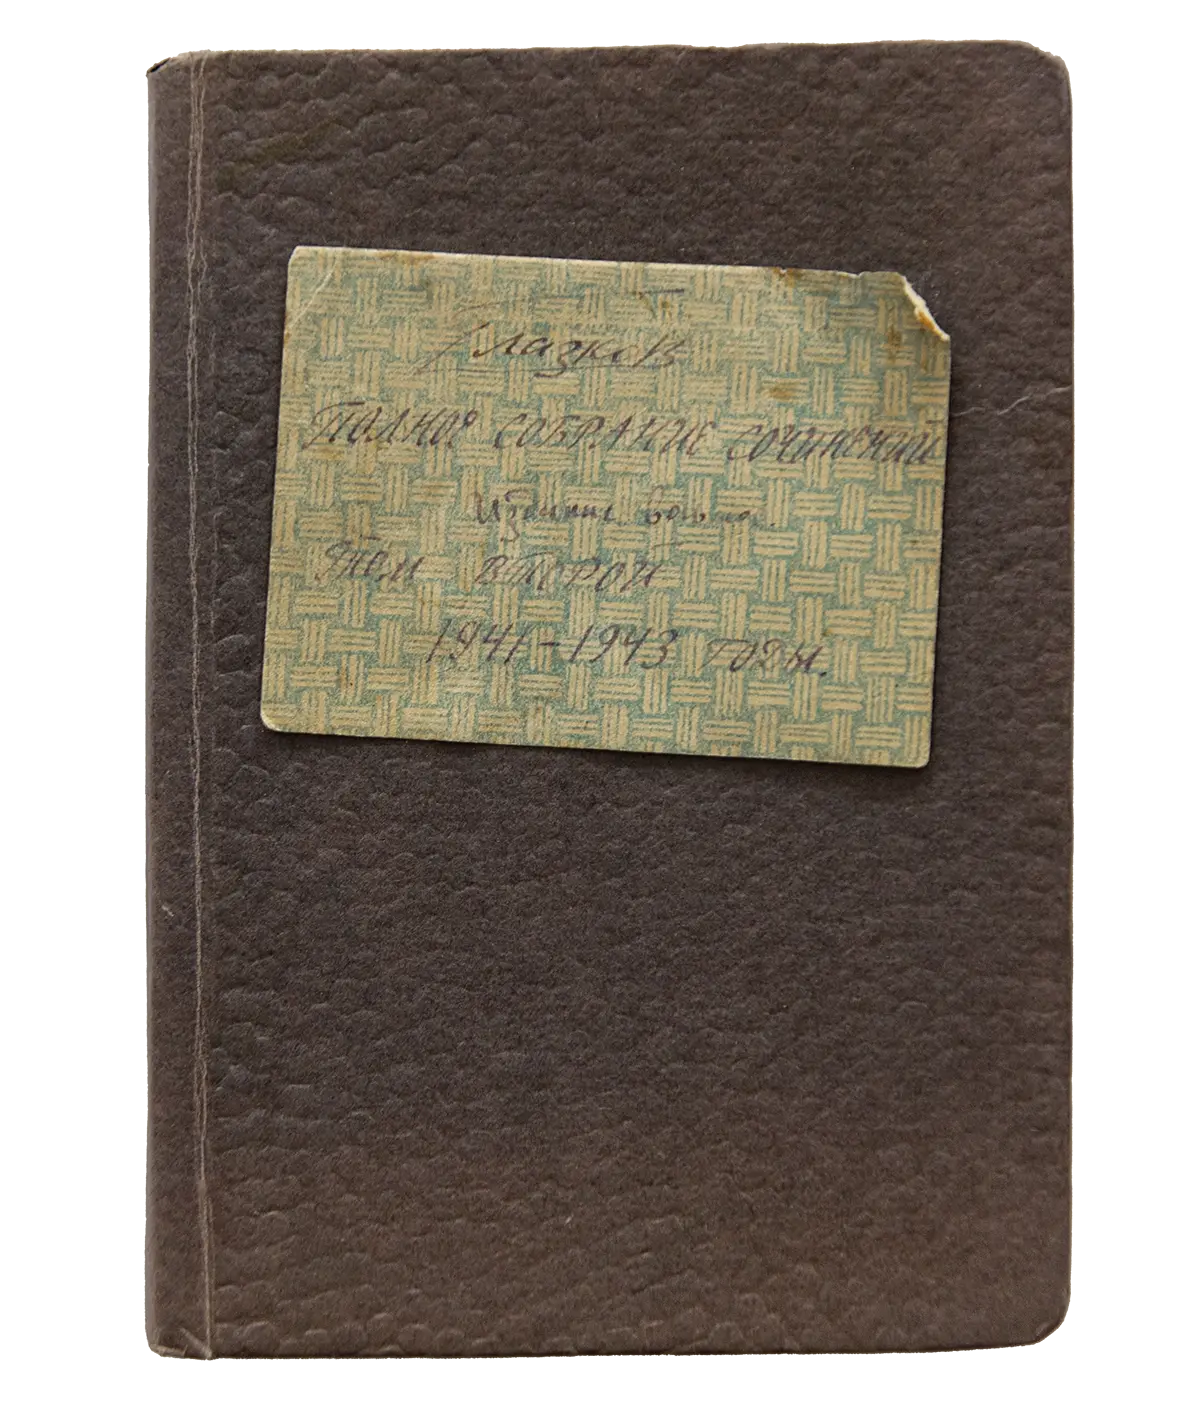 Глазков
ПОЛНОЕ СОБРАНИЕ СОЧИНЕНИЙ
Издание
ТОМ ВТОРОЙ
1941-1943 ГОДЫ.